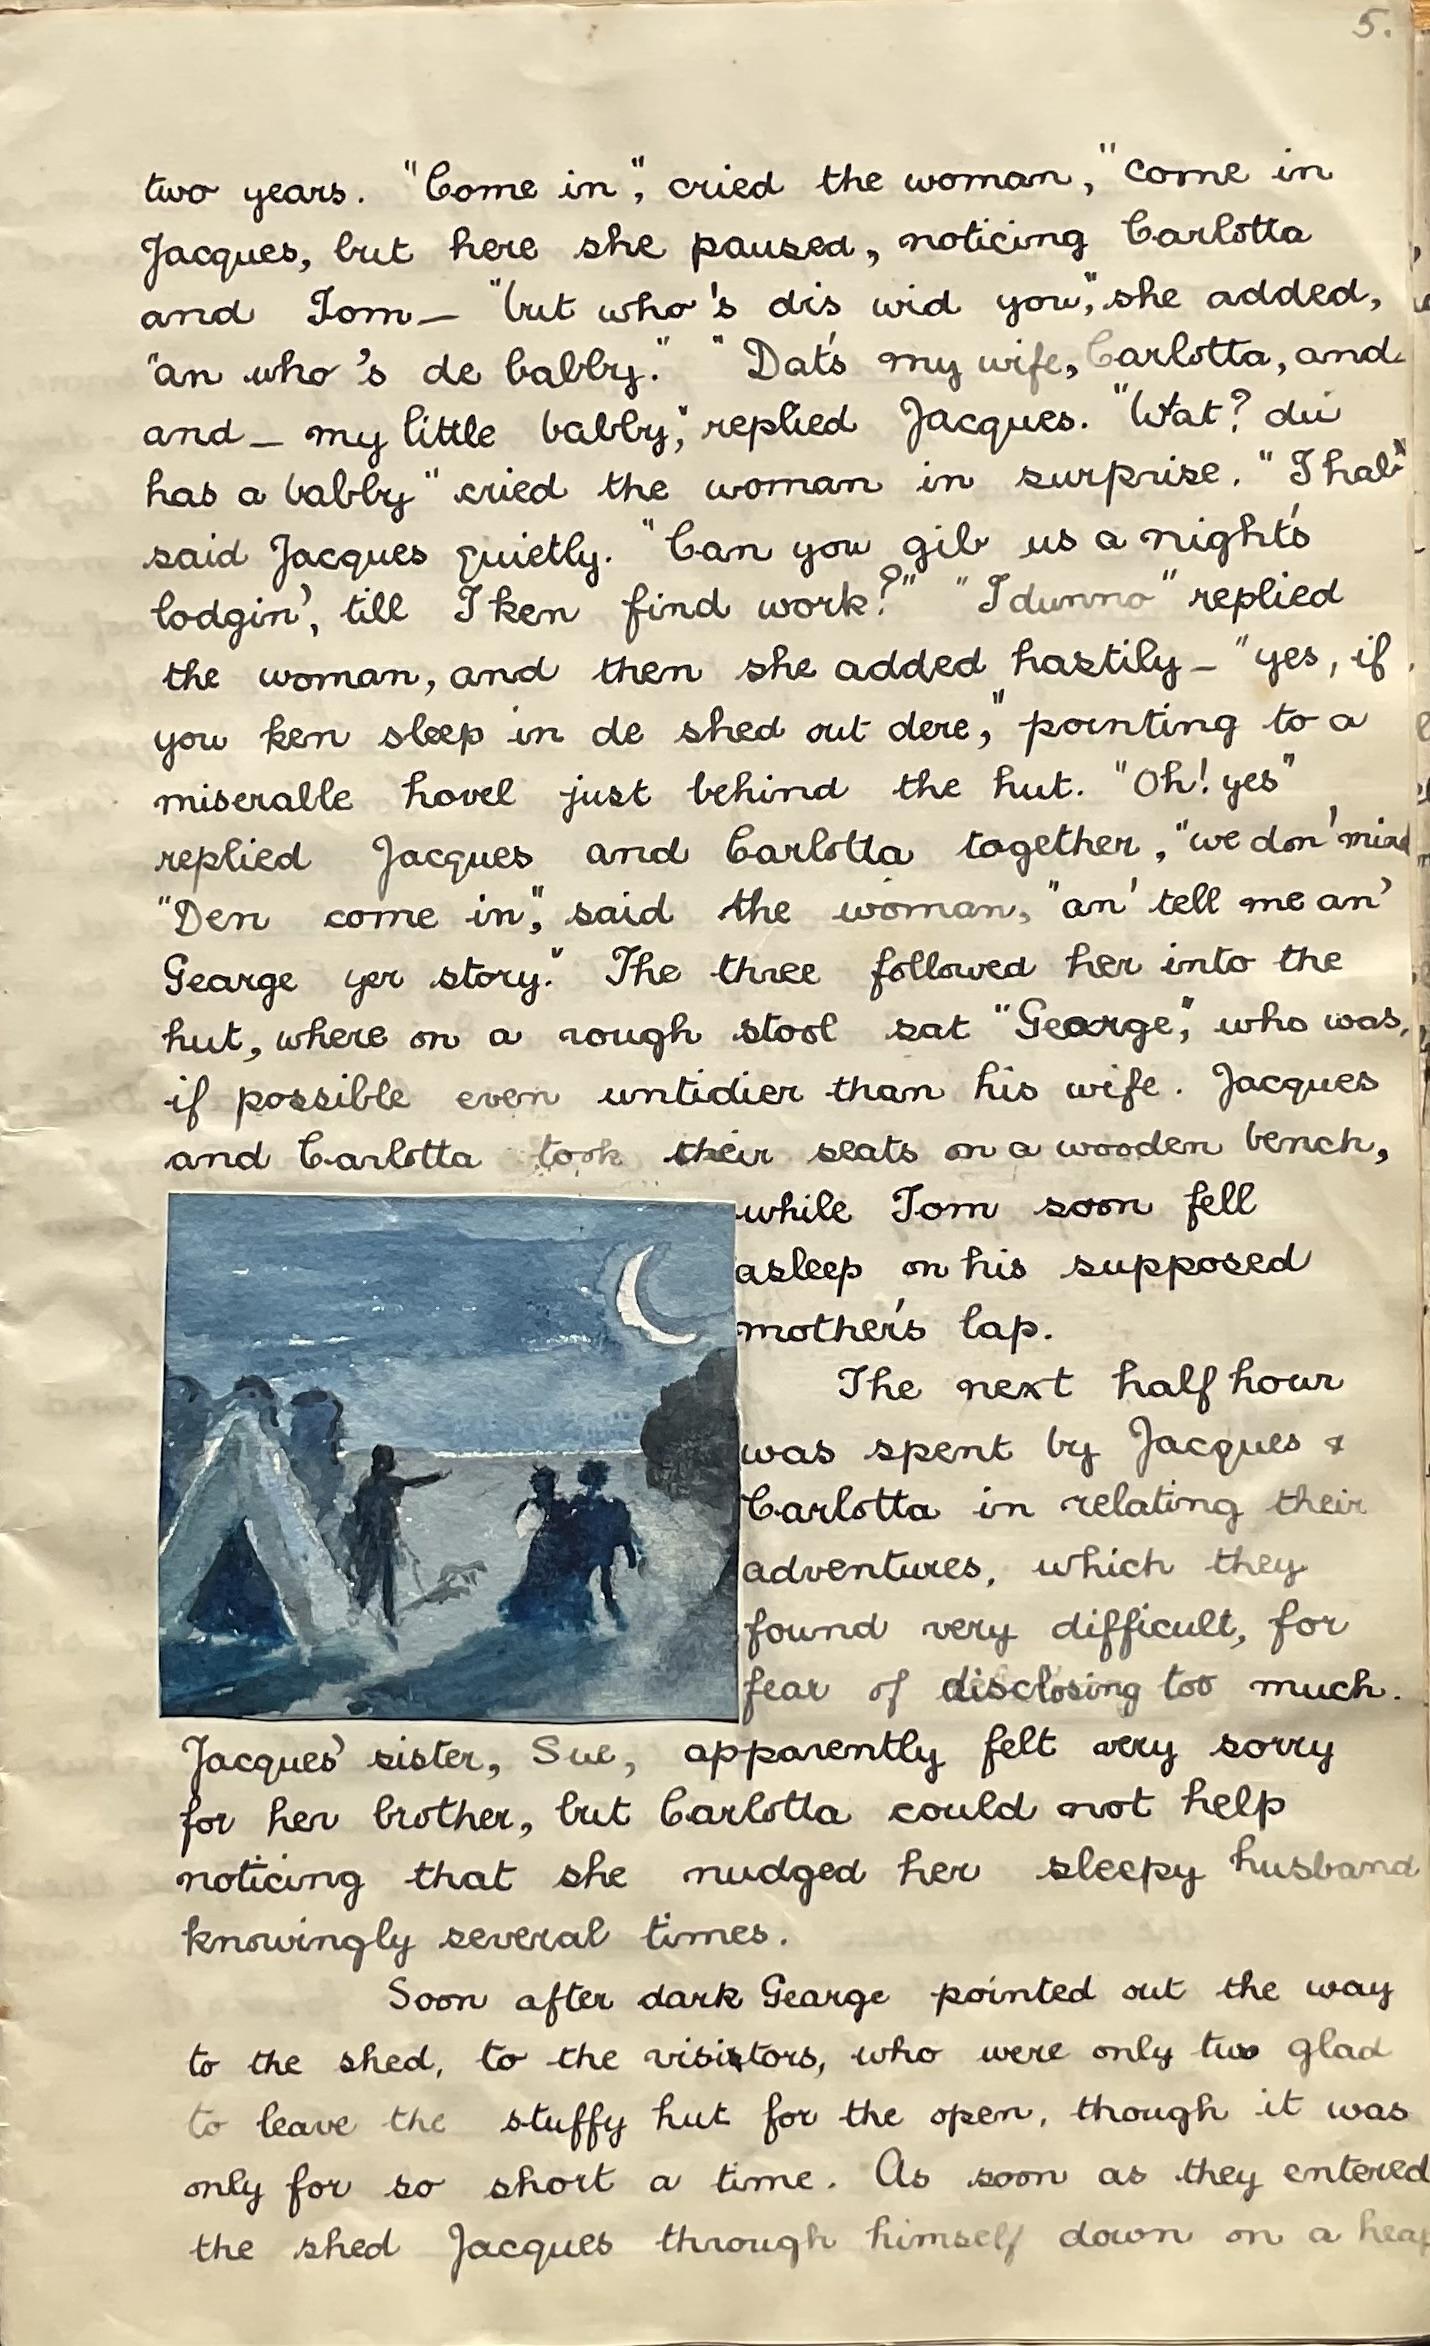 5.
two years. "Come in", cried the woman, "come in
Jacques, but here she paused, noticing Carlotta
and Tom — "but who's dis wid you", she added,
"an who's de babby." "Dat's my wife, Carlotta, and
and — my little babby", replied Jacques. "Wat? du
has a babby" cried the woman in surprise. "I hab"
said Jacques quietly. "Can you gib us a night's
lodgin', till I ken find work?" "I dunno" replied
the woman, and then she added hastily — "yes, if
you ken sleep in de shed out dere," pointing to a
miserable hovel just behind the hut. "Oh! yes"
replied Jacques and Carlotta together, "we don' mind
"Den come in", said the woman, "an' tell me an'
Gearge yer story." The three followed her into the
hut, where on a rough stool sat "Gearge", who was,
if possible even untidier than his wife. Jacques
and Carlotta took their seats on a wooden bench,
while Tom soon fell
asleep on his supposed
mother's lap.
The next half hour
was spent by Jacques &
Carlotta in relating their
adventures, which they
found very difficult, for
fear of disclosing too much.
Jacques' sister, Sue, apparently felt very sorry
for her brother, but Carlotta could not help
noticing that she nudged her sleepy husband
knowingly several times.
Soon after dark Gearge pointed out the way
to the shed, to the visitors, who were only two glad
to leave the stuffy hut for the open, though it was
only for so short a time. As soon as they entered
the shed Jacques through himself down on a heap